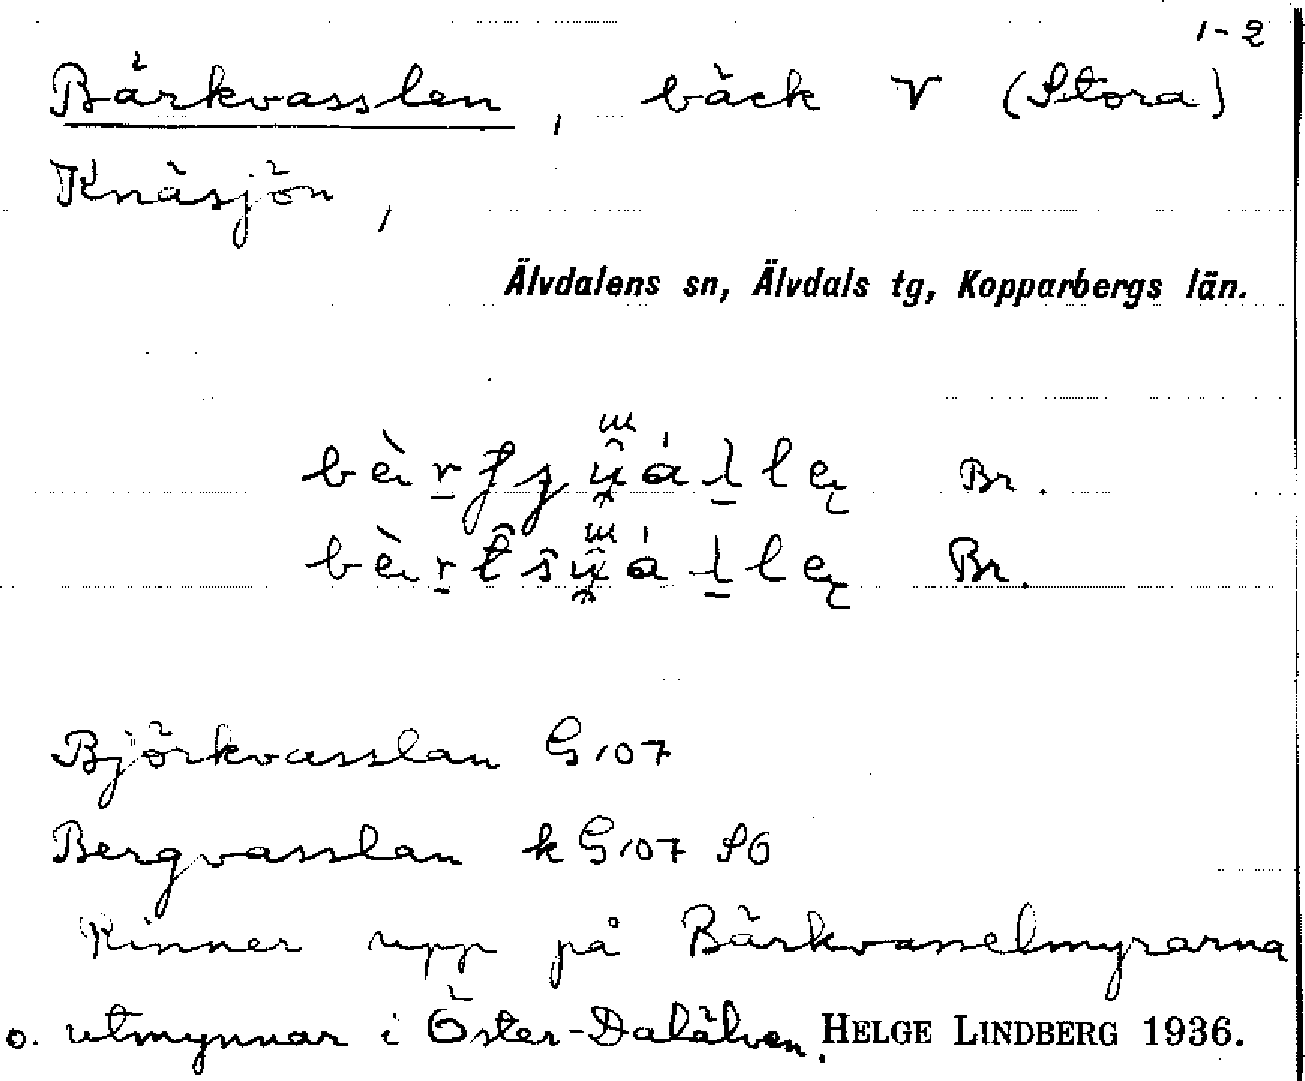 1-2
Bärkvasslen, bäck V (Stora)
Knäsjön,
Älvdalens sn, Älvdals tg, Kopparbergs län.
Br.
Br.
Björkvasslan G107
Bergvasslan k G107 SO
Rinner upp på Bärkvasselmyrarna
o. utmynnar i Öster-Dalälven. HELGE LINDBERG 1936.